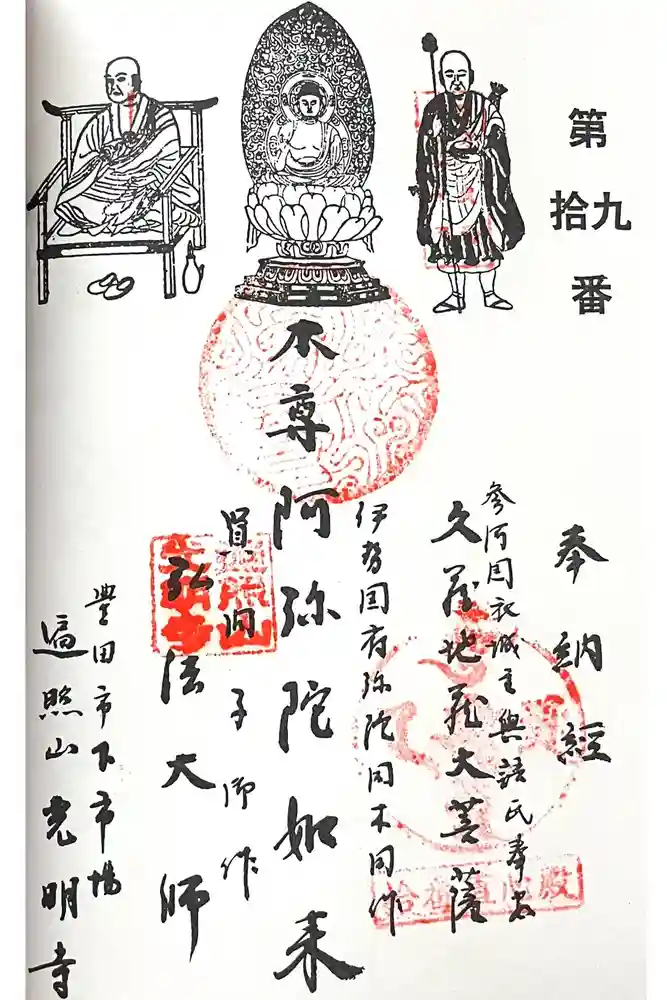 第
拾九
番
奉納經
参河国衣城主與語氏奉安
久蔵地蔵大菩薩
伊勢国府弥陀同木同作
本尊阿弥陀如来
賢问子御作
弘法大師
豊田市下市場
遍照山光明寺